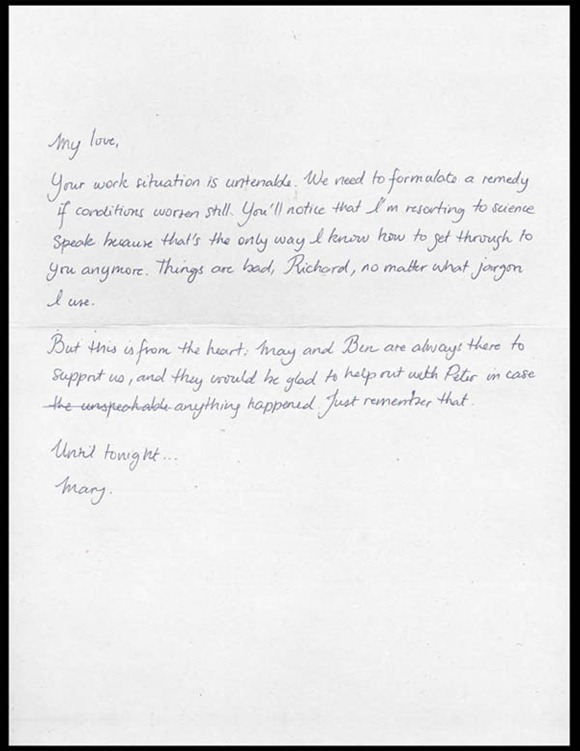 My love,
Your work situation is untenable. We need to formulate a remedy
if conditions worsen still. You'll notice that I'm resorting to science
speak because that's the only way I know how to get through to
you anymore. Things are bad, Richard, no matter what jargon
I use.
But this is from the heart: May and Ben are always there to
support us, and they would be glad to help out with Peter in case
the unspeakable anything happened. Just remember that.
Until tonight...
Mary.